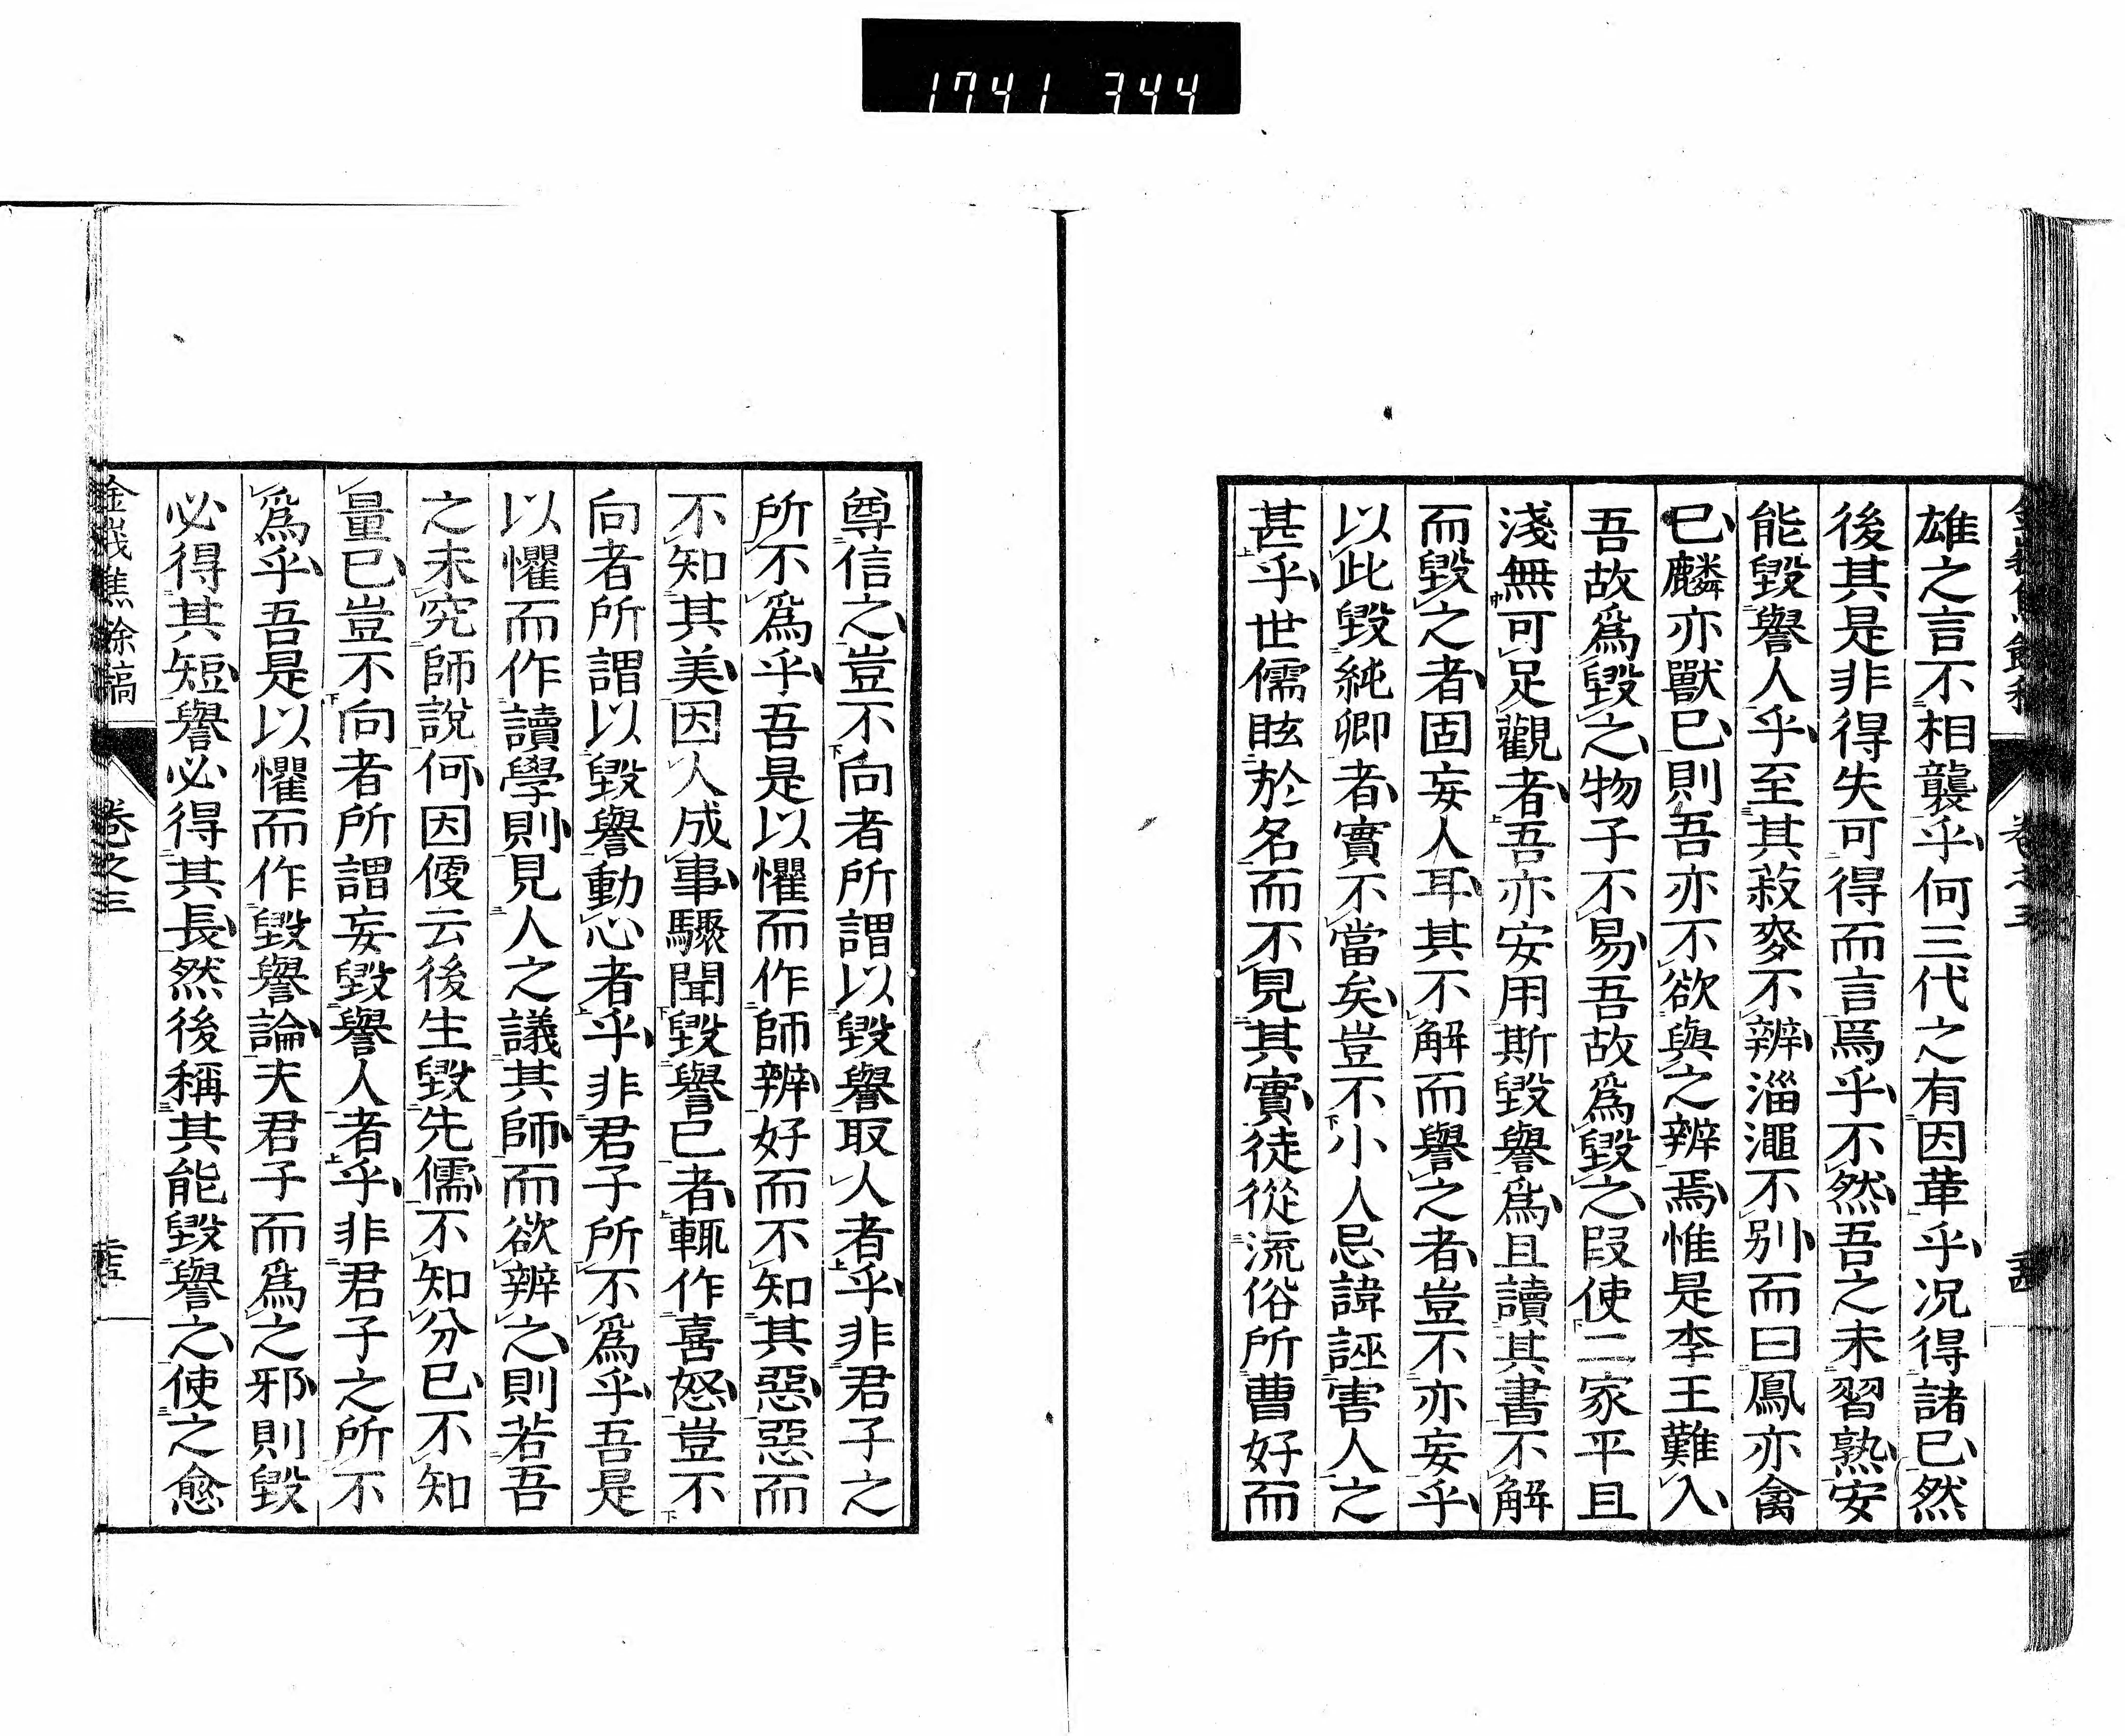 1741 344
雄之言不相襲乎何三代之有因革乎况得諸已然
後其是非得失可得而言焉乎不然吾之未習熟安
能毀譽人乎至其菽麥不辨淄澠不别而曰鳳亦禽
已麟亦獸已則吾亦不欲與之辨焉惟是李王難入
吾故爲毀之物子不易吾故爲毀之叚使二家平且
淺無可足觀者吾亦安用斯毀譽爲且讀其書不解
而毀之者固妄人耳其不解而譽之者豈不亦妄乎
以此毀純卿者實不當矣豈不小人忌諱誣害人之
甚乎世儒眩於名而不見其實徒從流俗所曹好而
尊信之豈不向者所謂以毀譽取人者乎非君子之
所不爲乎吾是以懼而作師辨好而不知其惡惡而
不知其美因人成事驟聞毀譽已者輒作喜怒豈不
向者所謂以毀譽動心者乎非君子所不爲乎吾是
以懼而作讀學則見人之議其師而欲辨之則若吾
之未究師說何因便云後生毀先儒不知分已不知
量已豈不向者所謂妄毀譽人者乎非君子之所不
爲乎吾是以懼而作毀譽論夫君子而爲之邪則毀
必得其短譽必得其長然後稱其能毀譽之使之愈
金峩焦餘稿
卷之三